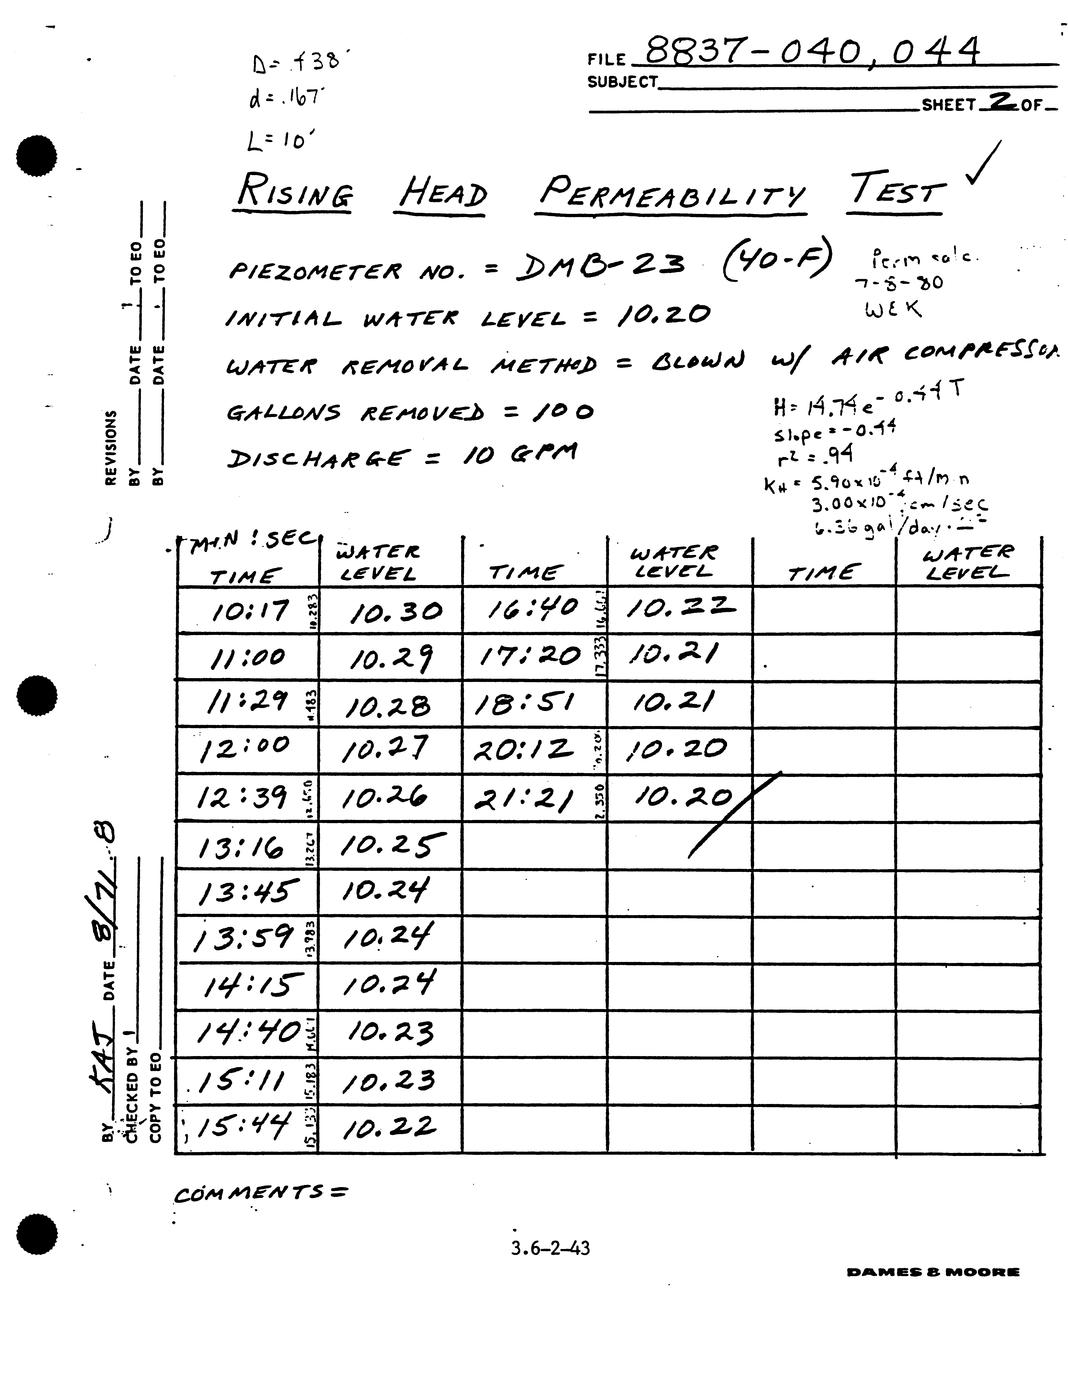 D= .438'
d= .167'
L= 10'
FILE 8837-040, 044
SUBJECT
SHEET 2 OF
RISING HEAD PERMEABILITY TEST ✓
PIEZOMETER NO. = DMB-23 (40-F)
Perm calc.
7-8-80
WEK
INITIAL WATER LEVEL = 10.20
WATER REMOVAL METHOD = BLOWN W/ AIR COMPRESSOR
GALLONS REMOVED = 100
DISCHARGE = 10 GPM
H= 14.74e-0.44T
slope = -0.44
r2 = .94
KH = 5.90x10-4 ft/min
3.00x10-4 cm/sec
6.36 gal/day
REVISIONS
BY DATE TO EO
BY DATE TO EO
MIN : SEC
TIME WATER LEVEL TIME WATER LEVEL TIME WATER LEVEL
10:17 10.283 10.30 16:40 10.22
11:00 10.29 17:20 17.333 10.21
11:29 11.483 10.28 18:51 10.21
12:00 10.27 20:12 10.20
12:39 12.650 10.26 21:21 10.20
13:16 13.267 10.25
13:45 10.24
13:59 13.983 10.24
14:15 10.24
14:40 10.23
15:11 15.183 10.23
15:44 10.22
BY KAJ DATE 8/71
CHECKED BY
COPY TO EO
COMMENTS =
3.6-2-43
DAMES & MOORE